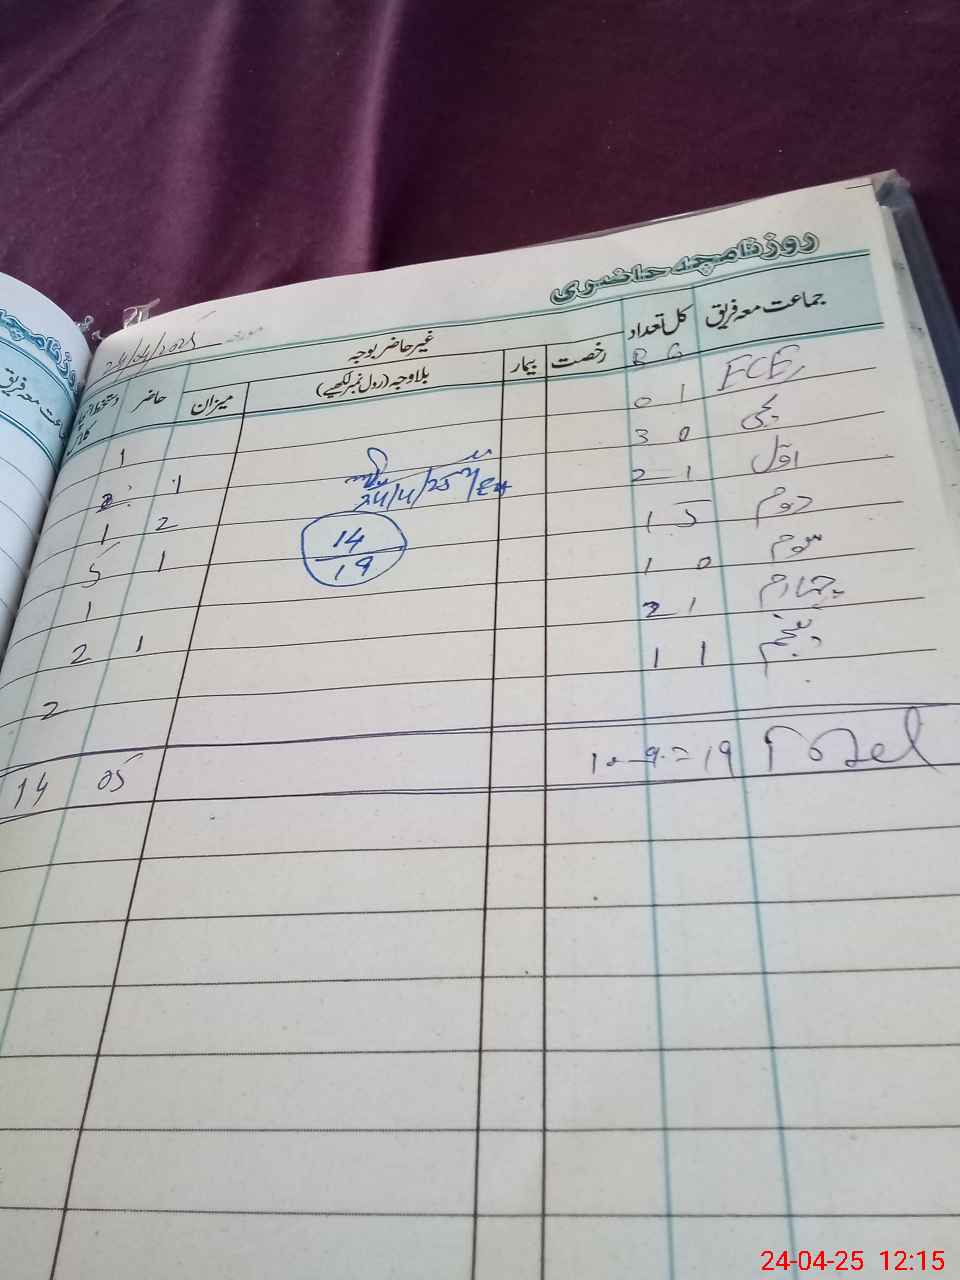 روزنامچہ حاضری
24/04/2025
جماعت معہ فریق کل تعداد غیر حاضر بوجہ حاضر
رخصت بیمار بلاوجہ (رول نمبر لکھیے) میزان
B G
ECE 0 1 1
کچی 3 0 1 2
اول 2 1 2 1
دوم 1 5 1 5
سوم 1 0 1
چہارم 2 1 1 2
پنجم 1 1 2
24/4/25
14
19
Total 10 9 = 19 05 14
جماعت معہ فریق
24-04-25 12:15